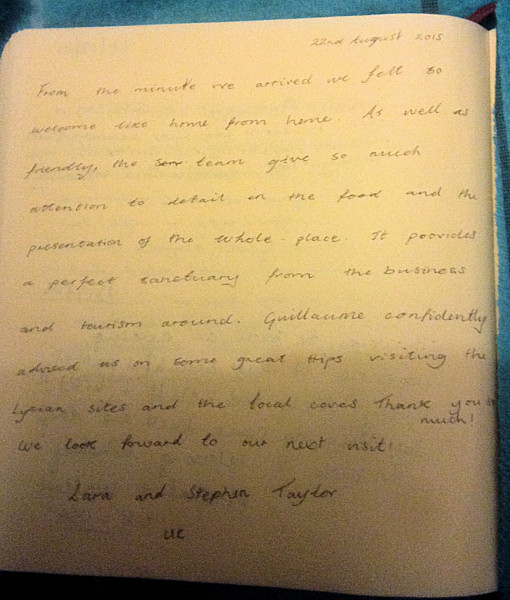 22nd August 2015
From the minute we arrived we felt so
welcome like home from home. As well as
friendly, the team give so much
attention to detail on the food and the
presentation of the whole place. It provides
a perfect sanctuary from the business
and tourism around. Guillaume confidently
advised us on some great trips visiting the
Lycian sites and the local coves Thank you so
much!
We look forward to our next visit!
Lara and Stephen Taylor
UK